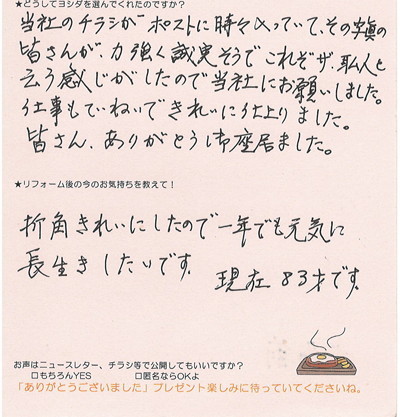 ★どうしてヨシダを選んでくれたのですか？
当社のチラシがポストに時々入っていて、その写真の
皆さんが、力強く誠実そうでこれぞザ、職人と
云う感じがしたので当社にお願いしました。
仕事もていねいできれいに仕上りました。
皆さん、ありがとう御座居ました。
★リフォーム後の今のお気持ちを教えて！
折角きれいにしたので一年でも元気に
長生きしたいです。 現在 83才です。
お声はニュースレター、チラシ等で公開してもいいですか？
□もちろんYES □匿名ならOKよ
「ありがとうございました」プレゼント楽しみに待っていてくださいね。